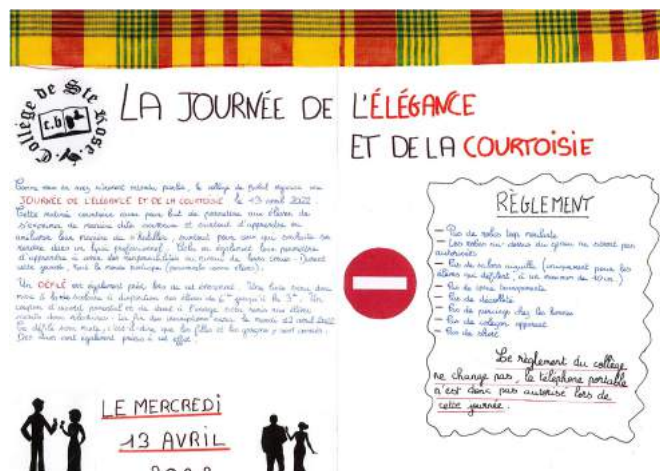 Collège de Ste Rose
c.b
LA JOURNÉE DE L'ÉLÉGANCE
ET DE LA COURTOISIE
Comme vous en avez sûrement entendu parler, le collège
JOURNÉE DE L'ÉLÉGANCE ET DE LA COURTOISIE le 13 avril 2022.
Cette matinée aura pour but de permettre aux élèves de
s'exprimer de manière dite courtoise et surtout d'apprendre ou
améliorer leur manière de s'habiller, surtout pour ceux qui
dans un lycée professionnel. Cela va également leur permettre
d'apprendre à avoir des responsabilités au niveau de leur
cette journée, tout le monde participe (personnels comme élèves).
Un DÉFILÉ est également prévu lors de cet événement. Une liste sera donc
mise à la vie scolaire à disposition des élèves de 6ème jusqu'à la 3e. Un
coupon d'accord parental et de droit à l'image sera remis aux élèves
La fin des inscriptions sera le mardi
Le défilé sera mixte, c'est-à-dire que les filles et les garçons y sont conviés.
Des duos sont également prévus à cet effet!
RÈGLEMENT
- Pas de robes trop moulantes
- Les robes au-dessus du genou ne seront pas
autorisées
- Pas de talons aiguille (uniquement pour les
élèves qui défilent, d'un maximum de 10 cm)
- Pas de transparents
- Pas de décolleté
- Pas de perçage chez les hommes
- Pas de caleçon apparent
- Pas de short
Le règlement du collège
ne change pas, le téléphone portable
n'est donc pas autorisé lors de
cette journée.
LE MERCREDI
13 AVRIL